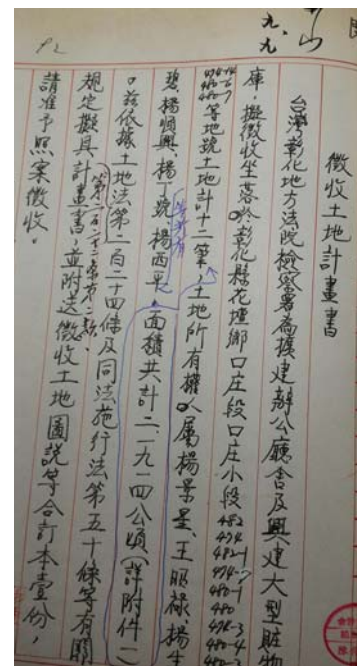 九、九
徵收土地計畫書
台灣彰化地方法院檢察署為擴建辦公廳舍及興建大型贓物
庫,擬徵收坐落於彰化縣花壇鄉口庄段口庄小段 482 474 482-1 474-7 480-1 480 474-3 474-4
等地號土地計十二筆,土地所有權人屬楊景星、王昭祿、楊生
碧、楊順興、楊丁號、楊西平等所有。面積共計二.一九一四公頃(詳附件一)
。茲依據土地法第二百二十四條及同法施行法第五十條等有關
規定擬具計畫書,並附送徵收土地圖說等合訂本壹份,
請准予照案徵收。